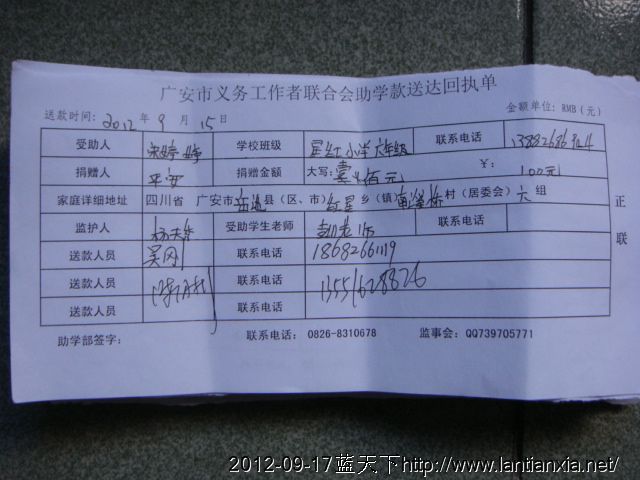 广安市义务工作者联合会助学款送达回执单
送款时间: 2012 年 9 月 15 日 金额单位: RMB (元)
受助人 学校班级 小学六年级 联系电话
捐赠人 平安 捐赠金额 大写: 壹佰元 ¥: 100元
家庭详细地址 四川省 广安市 岳池 县(区、市) 红星 乡(镇) 村(居委会) 六 组
监护人 受助学生老师 联系电话
送款人员 吴刚 联系电话 1868266119
送款人员 联系电话 13551628826
送款人员 联系电话
正
联
助学部签字: 联系电话: 0826-8310678 监事会: QQ739705771
2012-09-17蓝天下http://www.lantianxia.net/